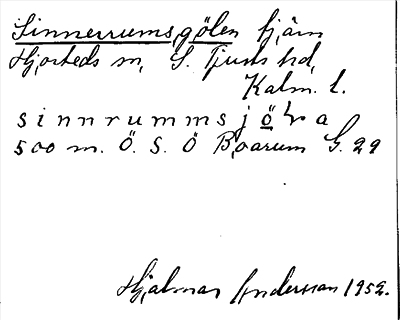 Sinnerrumsgölen tjärn
Hjorteds sn, S. Tjusts hd,
Kalm. l.
sinnrummsjö̱lra
500 m. Ö. S. Ö Boarum G. 29
Hjalmar Andersson 1952.